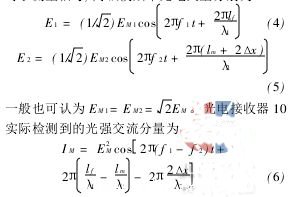 E₁ = (1/√2) E_{M1} cos[2πf₁t + 2πl_f/λ₁] (4)
E₂ = (1/√2) E_{M2} cos[2πf₂t + 2π(l_m + 2Δx)/λ₂]
(5)
一般也可认为 E_{M1} = E_{M2} = √2 E_M。光电接收器 10
实际检测到的光强交流分量为
I_M = E_M² cos[2π(f₁ - f₂)t +
2π[l_f/λ₁ - l_m/λ] - 2π 2Δx/λ] (6)